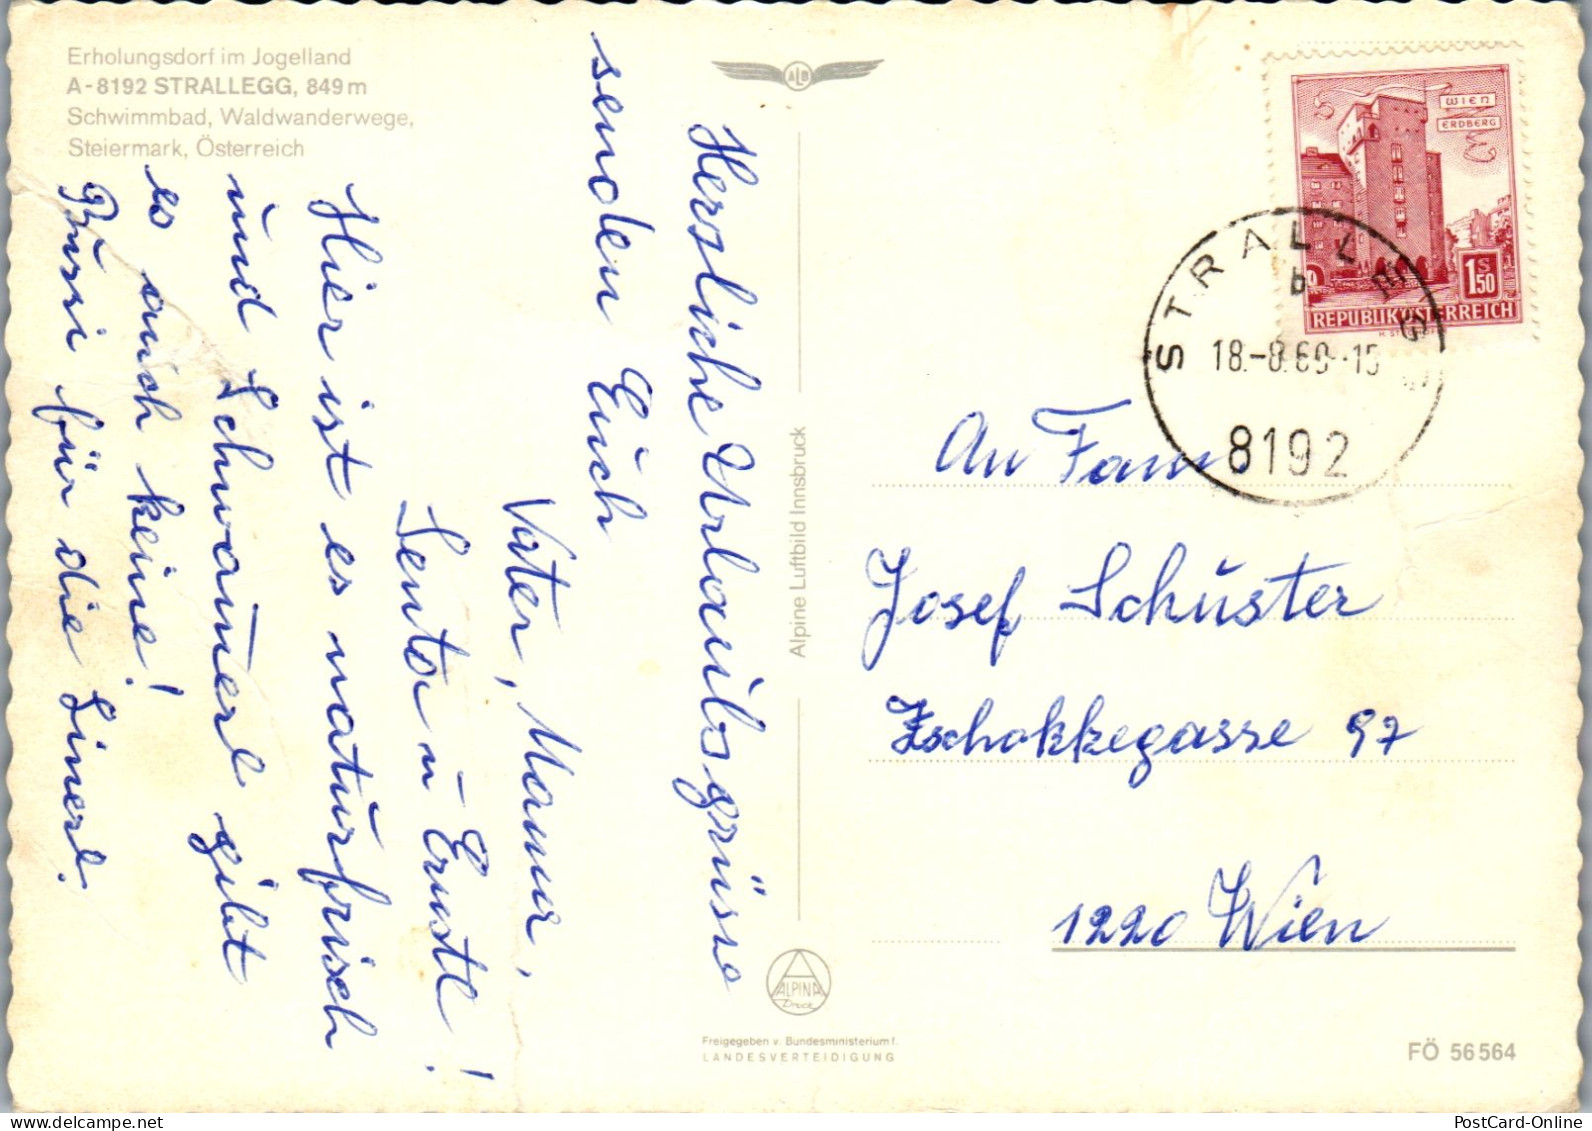 Erholungsdorf im Jogelland
A-8192 STRALLEGG, 849 m
Schwimmbad, Waldwanderwege,
Steiermark, Österreich
Herzliche Urlaubsgrüsse
senden Euch
Vater, Mama,
Senta u Ernstl!
Hier ist es naturfrisch
und Schwamerl gibt
es auch keine!
Bussi für die Linerl.
ALB
Alpine Luftbild Innsbruck
ALPINA
Druck
Freigegeben v. Bundesministerium f.
LANDESVERTEIDIGUNG
WIEN
ERDBERG
1 S 50
REPUBLIK ÖSTERREICH
STRALLEGG
b
18.-8.69.-15
8192
An Fam
Josef Schuster
Zschokkegasse 97
1220 Wien
FÖ 56 564
PostCard-Online